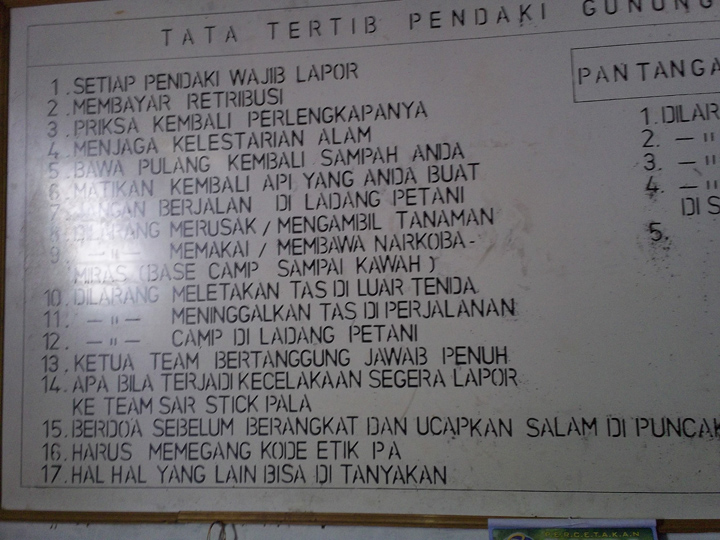 TATA TERTIB PENDAKI GUNUNG
1. SETIAP PENDAKI WAJIB LAPOR
2. MEMBAYAR RETRIBUSI
3. PRIKSA KEMBALI PERLENGKAPANYA
4. MENJAGA KELESTARIAN ALAM
5. BAWA PULANG KEMBALI SAMPAH ANDA
6. MATIKAN KEMBALI API YANG ANDA BUAT
7. JANGAN BERJALAN DI LADANG PETANI
8. DILARANG MERUSAK / MENGAMBIL TANAMAN
9. — " — MEMAKAI / MEMBAWA NARKOBA -
MIRAS (BASE CAMP SAMPAI KAWAH)
10. DILARANG MELETAKAN TAS DI LUAR TENDA
11. — " — MENINGGALKAN TAS DI PERJALANAN
12. — " — CAMP DI LADANG PETANI
13. KETUA TEAM BERTANGGUNG JAWAB PENUH
14. APA BILA TERJADI KECELAKAAN SEGERA LAPOR
KE TEAM SAR STICK PALA
15. BERDOA SEBELUM BERANGKAT DAN UCAPKAN SALAM DI PUNCAK
16. HARUS MEMEGANG KODE ETIK PA
17. HAL HAL YANG LAIN BISA DI TANYAKAN
PANTANGA
1. DILAR
2. — "
3. — "
4. — "
DI S
5.